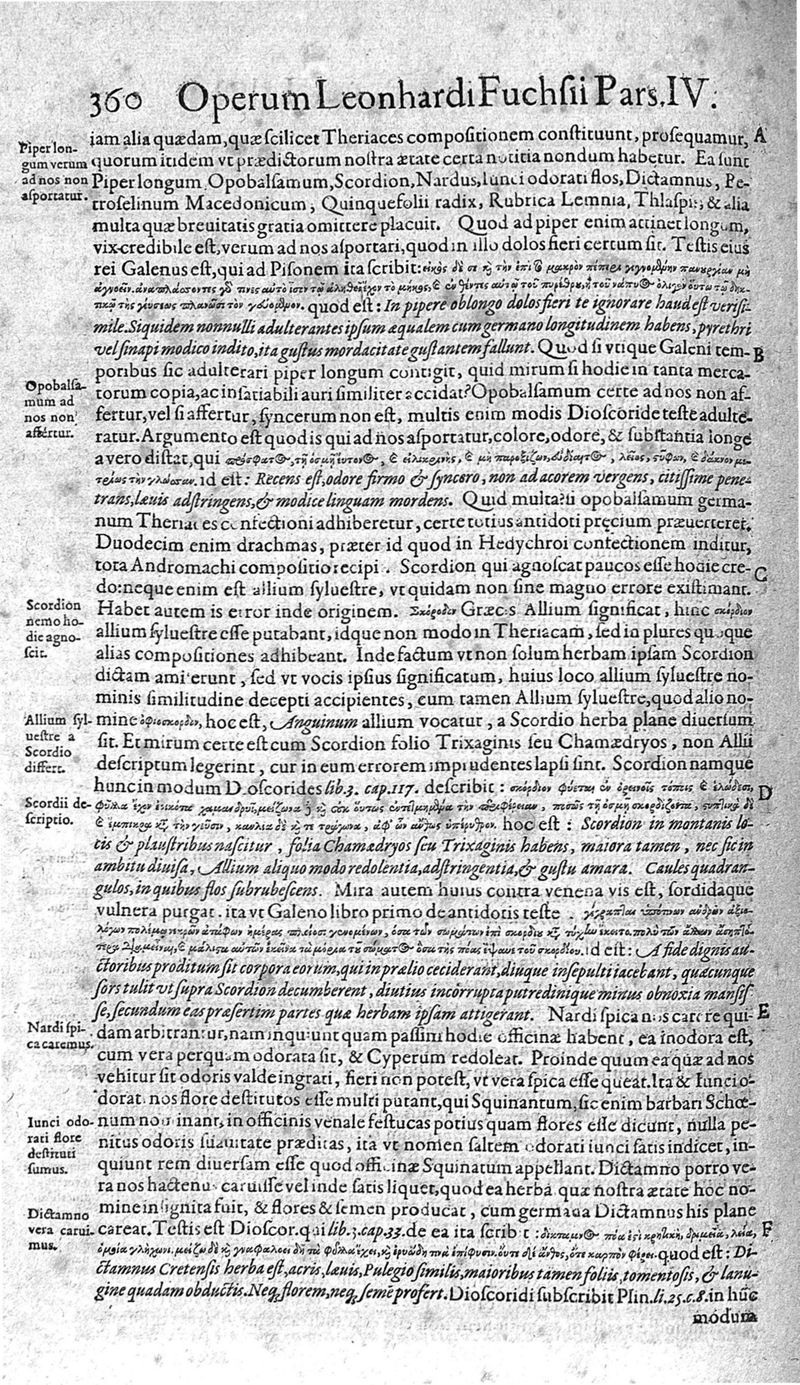 360 Operum Leonhardi Fuchsii Pars. IV.
iam alia quædam, quæ scilicet Theriaces compositionem constituunt, prosequamur, A
Piper lon-
gum verum
ad nos non
asportatur.
quorum itidem vt prædictorum nostra ætate certa notitia nondum habetur. Ea sunt
Piper longum, Opobalsamum, Scordion, Nardus, Iunci odorati flos, Dictamnus, Pe-
troselinum Macedonicum, Quinquefolii radix, Rubrica Lemnia, Thlaspis, & alia
multa quæ breuitatis gratia omittere placuit. Quod ad piper enim attinet longum,
vix credibile est, verum ad nos asportari, quod in illo dolos fieri certum sit. Testis eius
rei Galenus est, qui ad Pisonem ita scribit:
quod est: In pipere oblongo dolos fieri te ignorare haud est verisi-
mile. Siquidem nonnulli adulterantes ipsum æqualem cum germano longitudinem habens, pyrethri
vel sinapi modico indito, ita gustus mordacitate gustantem fallunt. Quod si vtique Galeni tem- B
poribus sic adulterari piper longum contigit, quid mirum si hodie in tanta merca-
Opobalsa-
mum ad
nos non
affertur.
torum copia, ac insatiabili auri similiter accidat? Opobalsamum certe ad nos non af-
fertur, vel si affertur, syncerum non est, multis enim modis Dioscoride teste adulte-
ratur. Argumento est quod is qui ad nos asportatur, colore, odore, & substantia longe
a vero distat, qui
id est: Recens est, odore firmo & syncero, non ad acorem vergens, citissime pene-
trans, læuis adstringens, & modice linguam mordens. Quid multa? si opobalsamum germa-
num Theriaces confectioni adhiberetur, certe totius antidoti precium præuerteret.
Duodecim enim drachmas, præter id quod in Hedychroi confectionem inditur,
tota Andromachi compositio recipi. Scordion qui agnoscat paucos esse hodie cre- C
do: neque enim est allium syluestre, vt quidam non sine magno errore existimant.
Scordion
nemo ho-
die agno-
scit.
Habet autem is error inde originem. Σκόροδον Græcis Allium significat, hinc σκόρδιον
allium syluestre esse putabant, idque non modo in Theriacam, sed in plures quoque
alias compositiones adhibeant. Inde factum vt non solum herbam ipsam Scordion
dictam amiserunt, sed vt vocis ipsius significatum, huius loco allium syluestre no-
minis similitudine decepti accipientes, cum tamen Allium syluestre, quod alio no-
Allium syl-
uestre a
Scordio
differt.
mine ὀφιοσκόρδον, hoc est, Anguinum allium vocatur, a Scordio herba plane diuersum
sit. Et mirum certe est cum Scordion folio Trixaginis seu Chamædryos, non Allii
descriptum legerint, cur in eum errorem imprudentes lapsi sint. Scordion namque
hunc in modum Dioscorides lib. 3. cap. 117. describit: D
Scordii de-
scriptio.
hoc est: Scordion in montanis lo-
cis & plaustribus nascitur, folia Chamædryos seu Trixaginis habens, maiora tamen, nec sic in
ambitu diuisa, Allium aliquo modo redolentia, adstringentia, & gustu amara. Caules quadran-
gulos, in quibus flos subrubescens. Mira autem huius contra venena vis est, sordidaque
vulnera purgat. ita vt Galeno libro primo de antidotis teste.
id est: A fide dignis au-
ctoribus proditum sit corpora eorum, qui in prælio ceciderant, diuque insepulti iacebant, quæcunque
sors tulit vt supra Scordion decumberent, diutius incorrupta putredinique minus obnoxia mansis-
se, secundum eas præsertim partes quæ herbam ipsam attigerant. Nardi spica nos carere qui- E
Nardi spi-
ca caremus.
dam arbitrantur, nam inquiunt quam passim hodie officinæ habent, ea inodora est,
cum vera perquam odorata sit, & Cyperum redoleat. Proinde quum ea quæ ad nos
vehitur sit odoris valde ingrati, fieri non potest, vt vera spica esse queat. Ita & Iunci o-
dorati nos flore destitutos esse multi putant, qui Squinantum, sic enim barbari Schœ-
Iunci odo-
rati flore
destituti
sumus.
num nominant, in officinis venale festucas potius quam flores esse dicunt, nulla pe-
nitus odoris suauitate præditas, ita vt nomen saltem odorati iunci satis indicet, in-
quiunt rem diuersam esse quod officinæ Squinatum appellant. Dictamno porro ve-
ra nos hactenus caruisse vel inde satis liquet, quod ea herba quæ nostra ætate hoc no-
Dictamno
vera carui-
mus.
mine insignita fuit, & flores & semen producat, cum germana Dictamnus his plane
careat. Testis est Dioscor. qui lib. 3. cap. 33. de ea ita scribit: F
quod est: Di-
ctamnus Cretensis herba est, acris, læuis, Pulegio similis, maioribus tamen foliis, tomentosis, & lanu-
gine quadam obductis. Neq; florem, neq; semē profert. Dioscoridi subscribit Plin. li. 25. c. 8. in hūc
modum